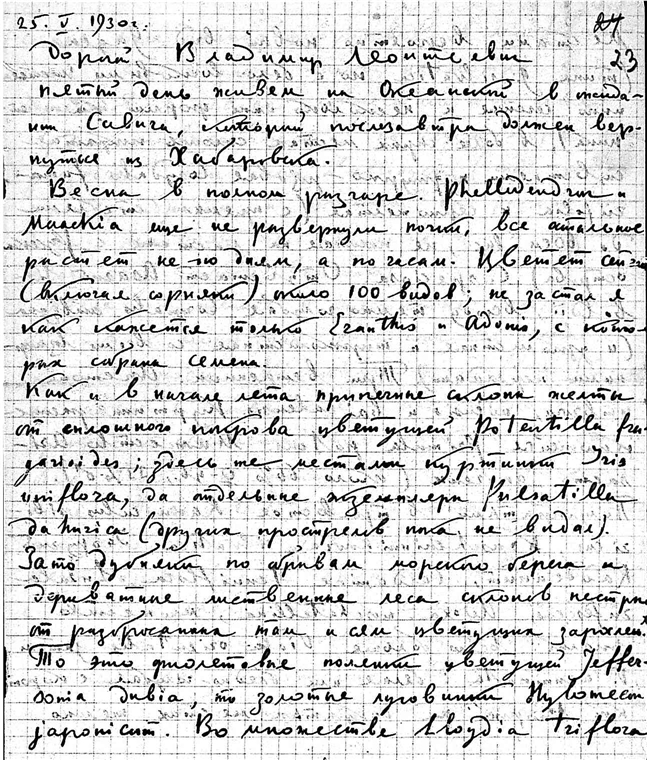 25. V. 1930 г. 24
Дорогой Владимир Леонтьевич 23
пятый день живем на Океанской в ожида-
нии Савича, который послезавтра должен вер-
нуться из Хабаровска.
Весна в полном разгаре. Phellodendron и
Maackia еще не развернули почки, все остальное
растет не по дням, а по часам. Цветет сейчас
(включая сорняки) около 100 видов; не застал я
как кажется только Eranthis и Adonis, с кото-
рых собрана семена.
Как и в начале лета припечные склоны желты
от сплошного покрова цветущей Potentilla fra-
garioides; здесь же местами куртинки Iris
uniflora, да отдельные экземпляры Pulsatilla
dahurica (других прострелов пока не видал).
Зато дубняки по обрывам морского берега и
дериватные лиственные леса склонов пестры
от разбросанных там и сям цветущих зарослей.
То это фиолетовые полянки цветущей Jeffer-
sonia dubia, то золотые луговинки Hylomecon
japonicum. Во множестве Lloydia triflora